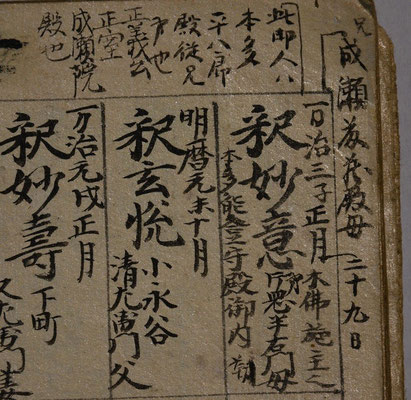 兄
成瀬藤蔵殿母 二十九日
此即人八
本多
平八郎
殿従兄
才也
正義公
正室
成瀬院
殿也
万治三子正月 本佛施主也
釈妙意
本多能登守殿御内
明暦元未十月
釈玄悦 小永谷
清九衛門父
万治元戌正月
釈妙壽 下町